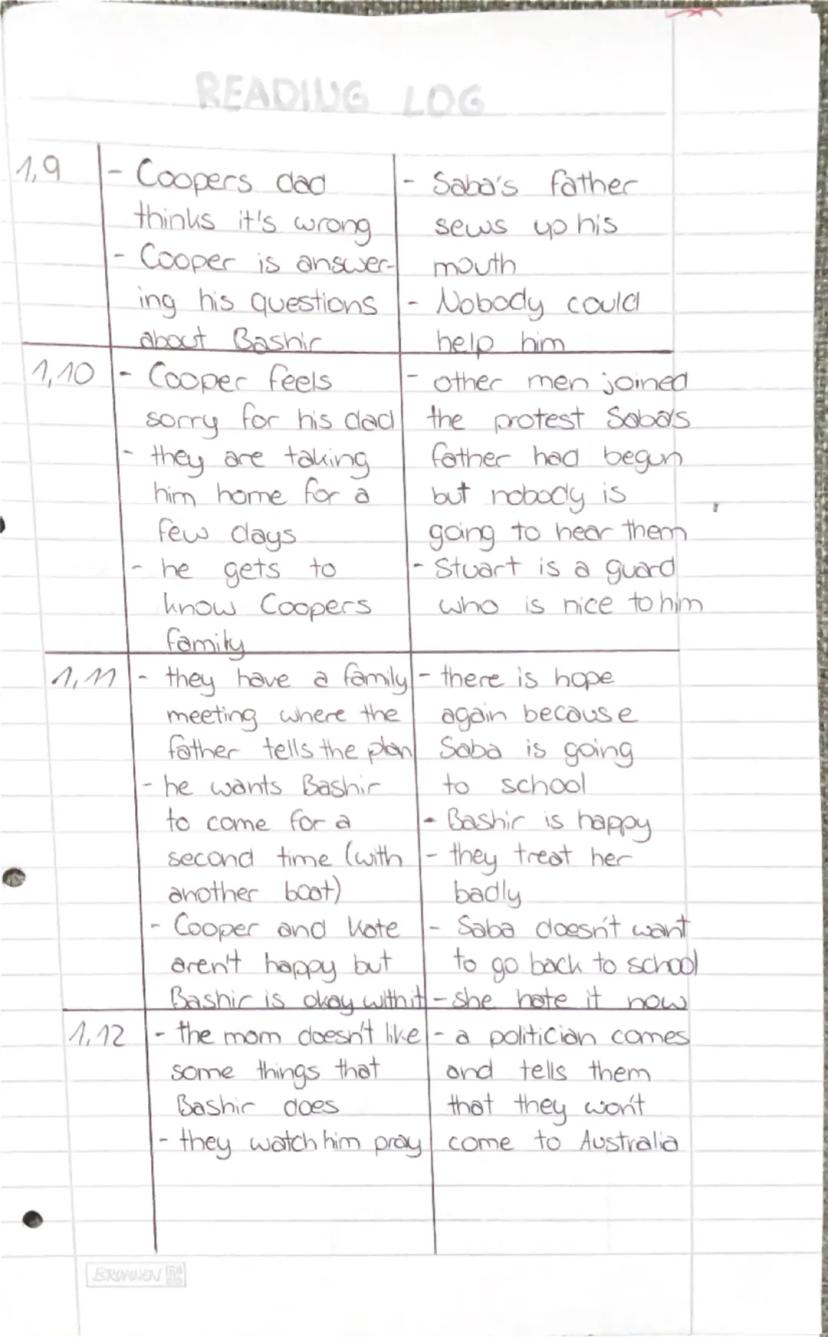 READING LOG
1,9
- Coopers dad
thinks it's wrong
- Cooper is answer-
ing his questions
about Bashir
- Saba's father
sews up his
mouth
- Nobody could
help him
1,10
- Cooper feels
sorry for his dad
- they are taking
him home for a
few days
- he gets to
know Coopers
family
- other men joined
the protest Saba's
father had begun
but nobody is
going to hear them
- Stuart is a guard
who is nice to him
1,11
- they have a family
meeting where the
father tells the plan
- he wants Bashir
to come for a
second time (with
another boat)
- Cooper and Kate
aren't happy but
Bashir is okay with it
- there is hope
again because
Saba is going
to school
- Bashir is happy
- they treat her
badly
- Saba doesn't want
to go back to school
- she hate it now
1,12
- the mom doesn't like
some things that
Bashir does
- they watch him pray
- a politician comes
and tells them
that they won't
come to Australia
BRUNNEN